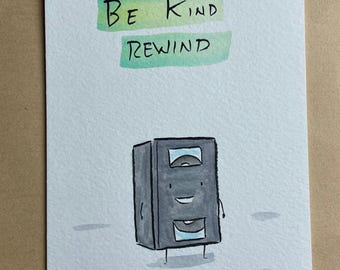 Be Kind
Rewind